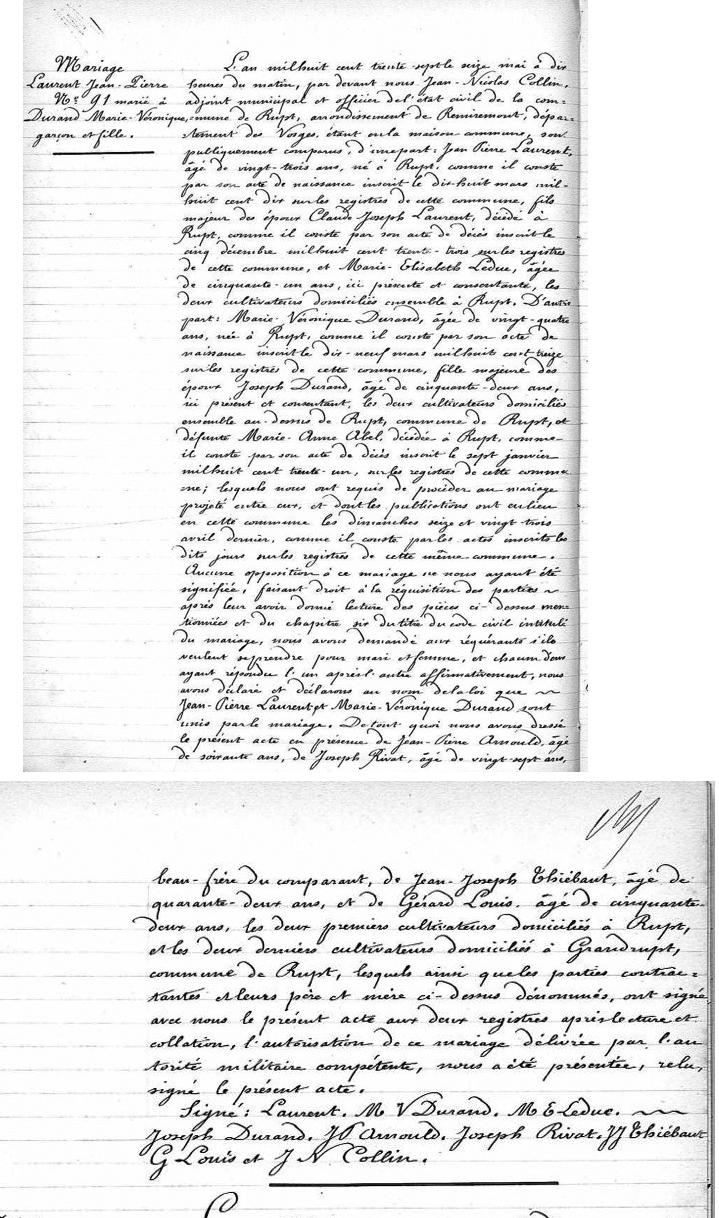 Mariage
Laurent Jean-Pierre
No 91 marié à
Durand Marie-Véronique,
garçon et fille.
L'an milhuit cent trente-sept le seize mai à dix
heures du matin, par devant nous Jean-Nicolas Collin,
adjoint municipal et officier de l'état civil de la com-
mune de Rupt, arrondissement de Remiremont, dépar-
tement des Vosges, étant en la maison commune, sont
publiquement comparus, d'une part: Jean Pierre Laurent,
âgé de vingt-trois ans, né à Rupt, comme il conste
par son acte de naissance inscrit le dix-huit mars mil-
huit cent dix sur les registres de cette commune, fils
majeur des époux Claude Joseph Laurent, décédé à
Rupt, comme il conste par son acte de décès inscrit le
cinq décembre milhuit cent trente-trois sur les registres
de cette commune, et Marie-Elisabeth Leduc, âgée
de cinquante-un ans, ici présente et consentante, les
deux cultivateurs domiciliés ensemble à Rupt. D'autre
part: Marie-Véronique Durand, âgée de vingt-quatre
ans, née à Rupt, comme il conste par son acte de
naissance inscrit le dix-neuf mars milhuit cent treize
sur les registres de cette commune, fille majeure des
époux Joseph Durand, âgé de cinquante-deux ans,
ici présent et consentant, les deux cultivateurs domiciliés
ensemble au-dessus de Rupt, commune de Rupt, et
défunte Marie-Anne Abel, décédée à Rupt, comme
il conste par son acte de décès inscrit le sept janvier
milhuit cent trente-un, sur les registres de cette commu-
ne; lesquels nous ont requis de procéder au mariage
projeté entre eux, et dont les publications ont eu lieu
en cette commune les dimanches seize et vingt trois
avril dernier, comme il conste par les actes inscrits les
dits jours sur les registres de cette même commune.
Aucune opposition à ce mariage ne nous ayant été
signifiée, faisant droit à la réquisition des parties
après leur avoir donné lecture des pièces ci-dessus men-
tionnées et du chapitre six du titre du code civil intitulé
du mariage, nous avons demandé aux requérants s'ils
veulent se prendre pour mari et femme, et chacun d'eux
ayant répondu l'un après l'autre affirmativement, nous
avons déclaré et déclarons au nom de la loi que
Jean-Pierre Laurent et Marie-Véronique Durand sont
unis par le mariage. De tout quoi nous avons dressé
le présent acte en présence de Jean-Pierre Arnould, âgé
de soixante ans, de Joseph Rivat, âgé de vingt-sept ans,
beau-frère du comparant, de Jean-Joseph Thiébaut, âgé de
quarante-deux ans, et de Gérard Louis, âgé de cinquante-
deux ans, les deux premiers cultivateurs domiciliés à Rupt,
et les deux derniers cultivateurs domiciliés à Grandrupt,
commune de Rupt, lesquels ainsi que les parties contrac-
tantes et leurs père et mère ci-dessus dénommés, ont signé
avec nous le présent acte aux deux registres après lecture et
collation, l'autorisation de ce mariage délivrée par l'au
torité militaire compétente, nous a été présentée, relu,
signé le présent acte.
Signé: Laurent. M V Durand. M E Leduc.
Joseph Durand. J P Arnould. Joseph Rivat. J J Thiébaut
G Louis et J N Collin.